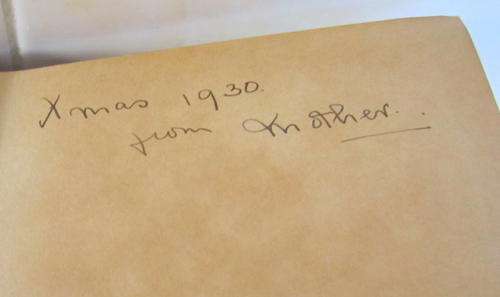 Xmas 1930.
from Mother..